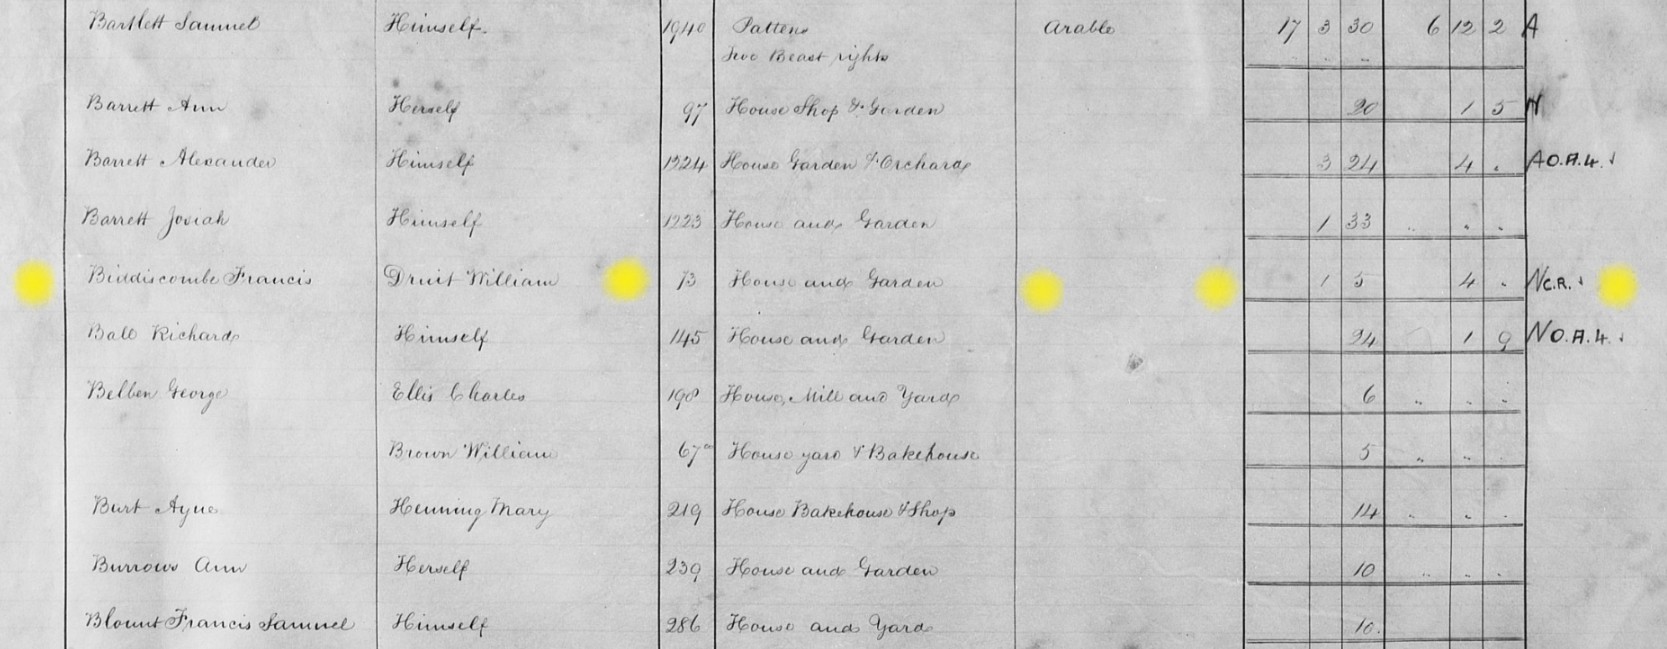 Bartlett Samuel Himself. 1940 Pattens Arable 17 3 30 6 12 2 A
Two Beast rights " "
Barrett Ann Herself 97 House Shop & Garden 20 1 5 N
Barrett Alexander Himself 1224 House Garden & Orchard 3 24 4 . A O.A.4.
Barrett Josiah Himself 1223 House and Garden 1 33 " " "
Biddiscombe Francis Druit William 73 House and Garden 1 5 4 . N C.R.
Ball Richard Himself 145 House and Garden 24 1 9 N O.A.4.
Belben George Ellis Charles 198 House, Mill and Yard 6 " " "
Brown William 67a House yard & Bakehouse 5 " " "
Burt Henning Mary 219 House Bakehouse & Shop 14 " " "
Burrows Ann Herself 239 House and Garden 10 " " "
Blount Francis Samuel Himself 286 House and Yard 10.